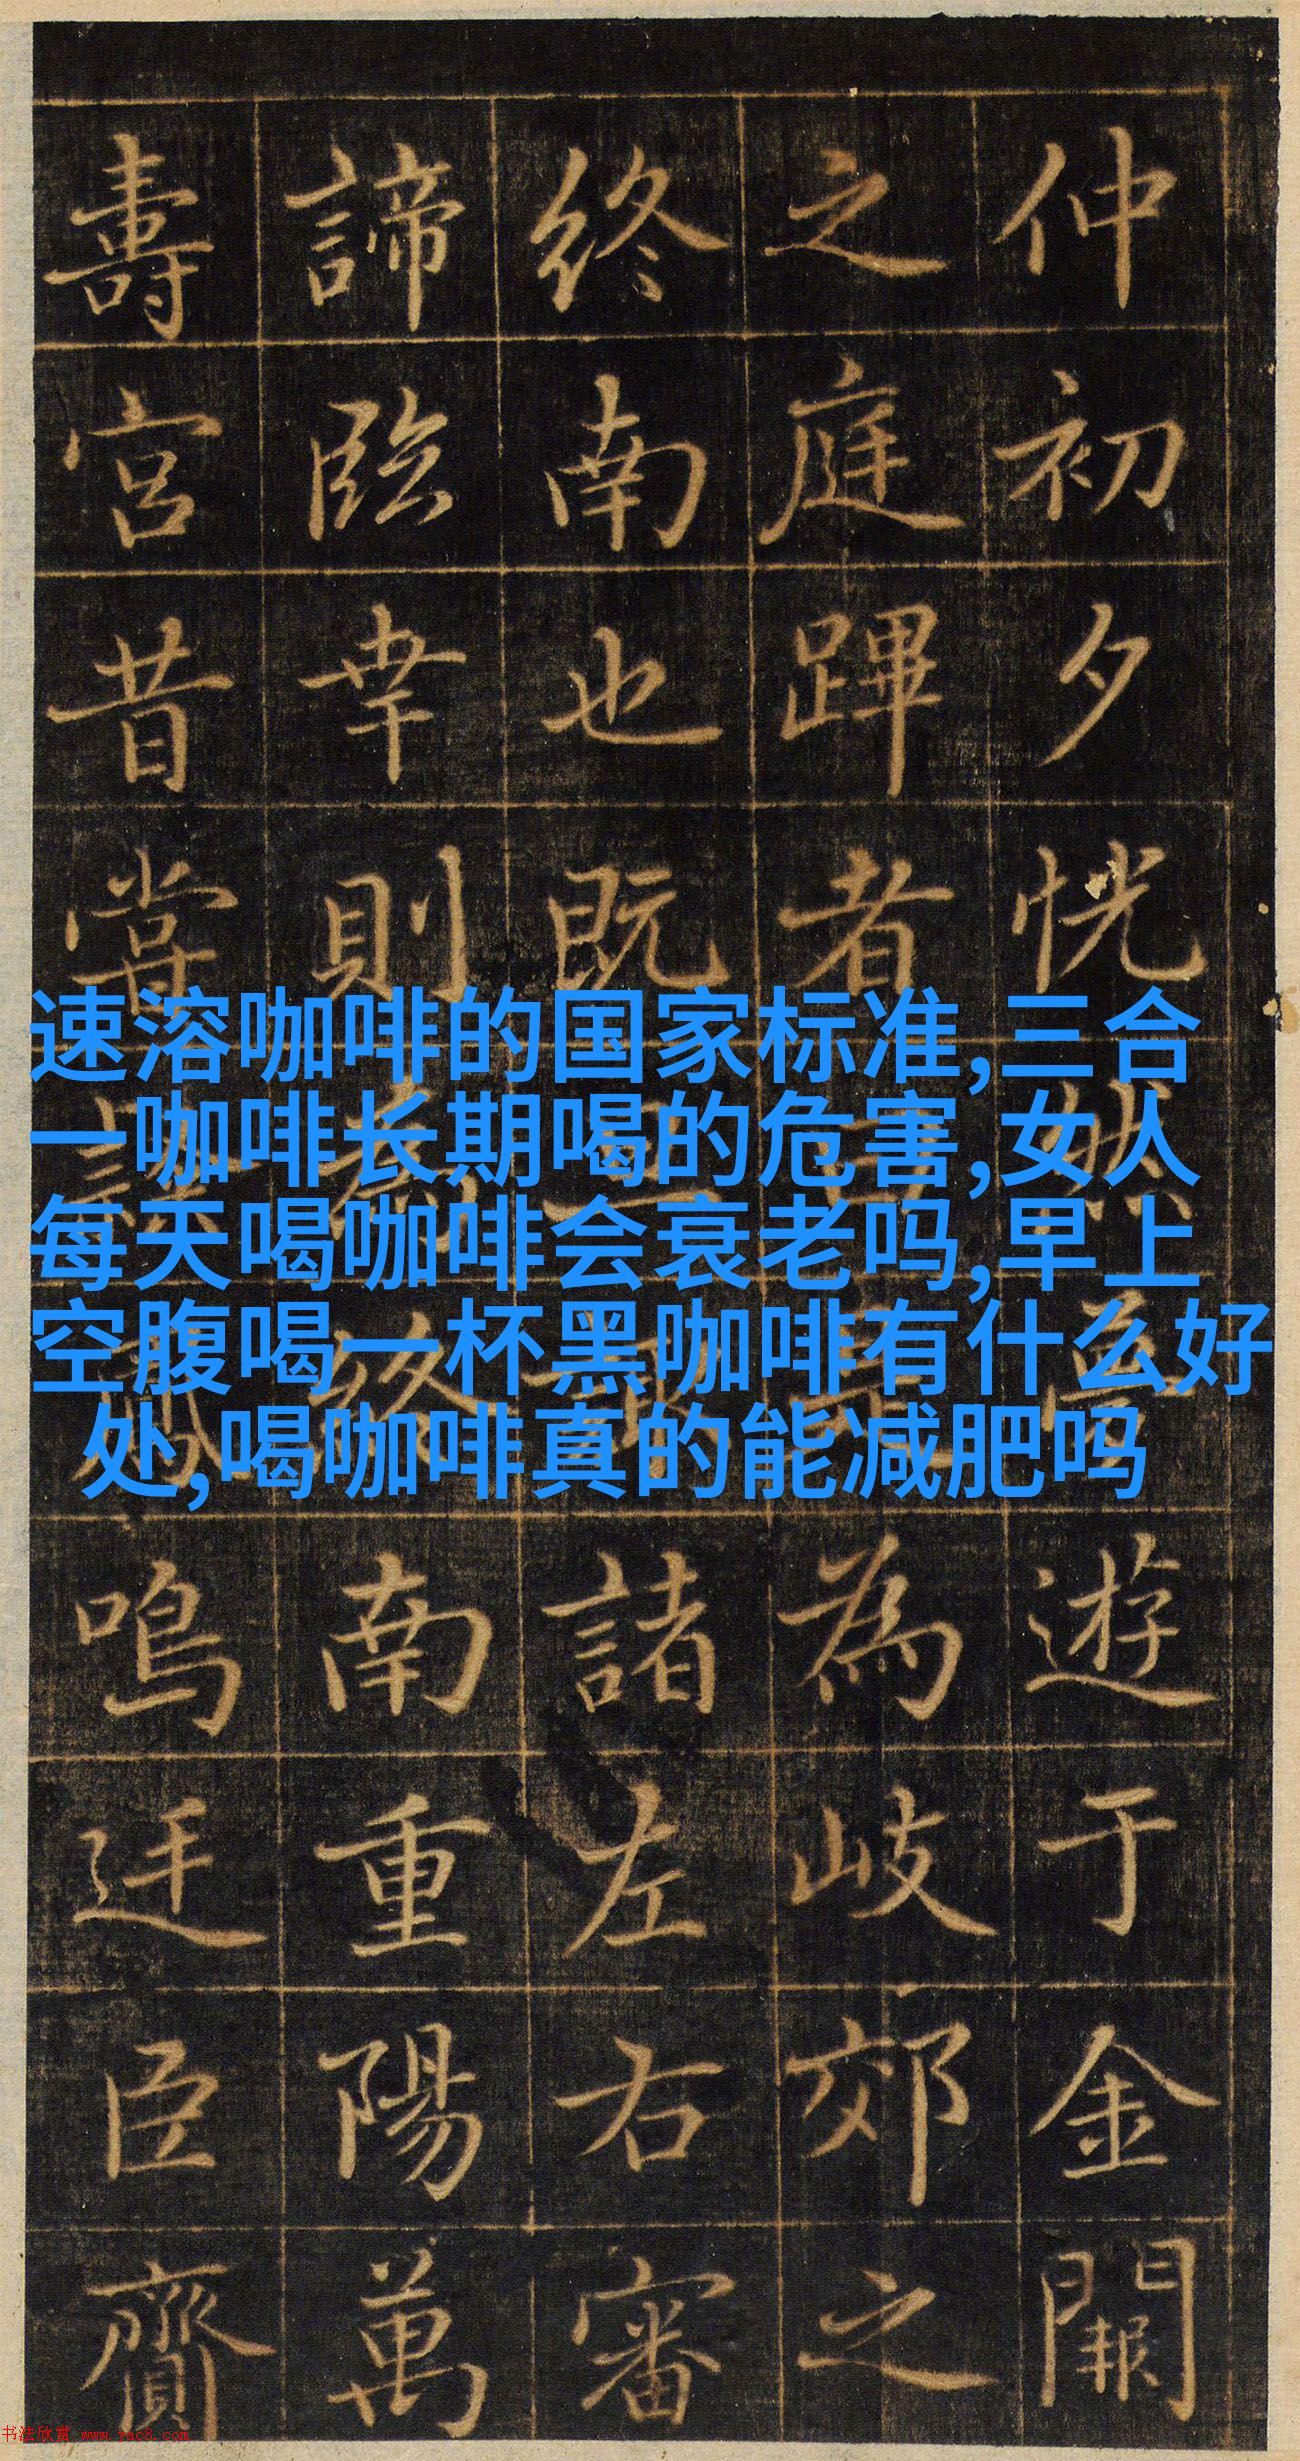 仲初夕恍
遊于金闕
之庭蹕者
為岐郊之
終南也既
諸左右審
諦臨幸則
南重陽萬
壽宮昔嘗
鳴玨臣齎
速溶咖啡的国家标准,三合
一咖啡长期喝的危害,女人
每天喝咖啡会衰老吗,早上
空腹喝一杯黑咖啡有什么好
处,喝咖啡真的能减肥吗
书法欣赏 www.yac8.com